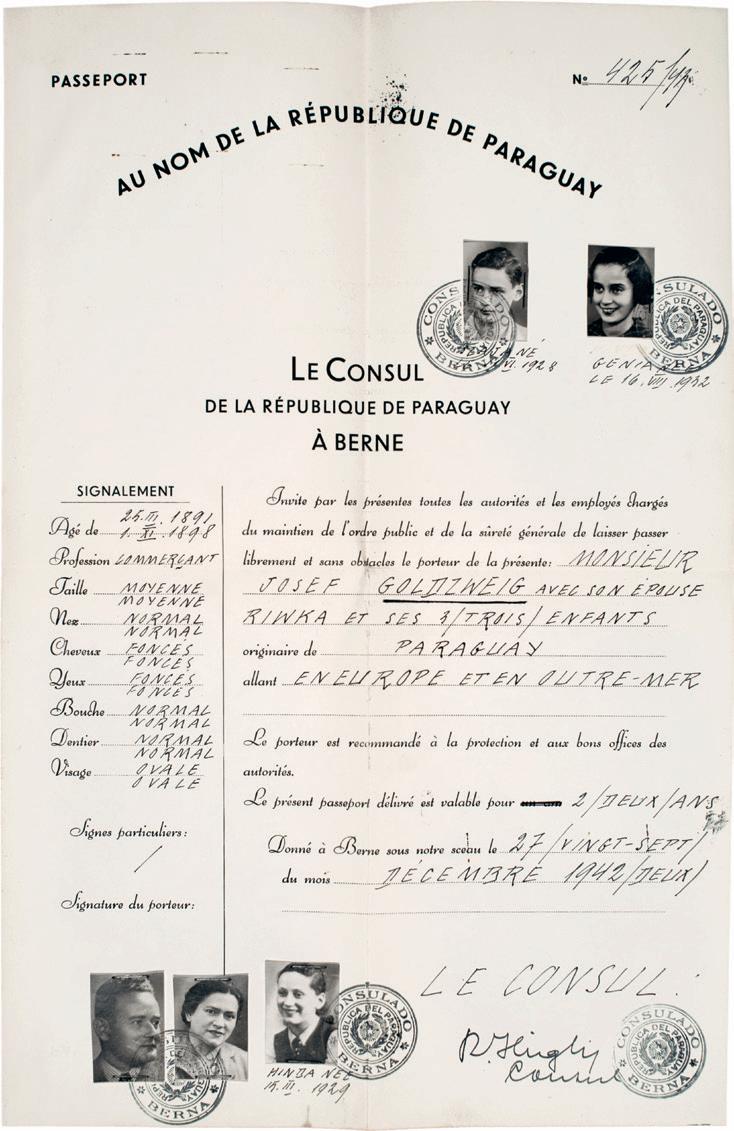 PASSEPORT
No 425/42
AU NOM DE LA RÉPUBLIQUE DE PARAGUAY
CONSULADO
REPUBLICA DEL PARAGUAY
BERNA
CONSULADO
REPUBLICA DEL PARAGUAY
BERNA
NÉ
VI. 1928
GENIA
LE 16. VIII 1932
LE CONSUL
DE LA RÉPUBLIQUE DE PARAGUAY
À BERNE
SIGNALEMENT
25. III. 1891
Agé de 1. XI. 1898
Profession COMMERÇANT
Taille MOYENNE
MOYENNE
Nez NORMAL
NORMAL
Cheveux FONCÉS
FONCÉS
Yeux FONCÉS
FONCÉS
Bouche NORMAL
NORMAL
Dentier NORMAL
NORMAL
Visage OVALE
OVALE
Signes particuliers:
/
Signature du porteur:
Invite par les présentes toutes les autorités et les employés chargés
du maintien de l'ordre public et de la sûreté générale de laisser passer
librement et sans obstacles le porteur de la présente: MONSIEUR
JOSEF GOLDZWEIG AVEC SON ÉPOUSE
RIWKA ET SES 3/TROIS/ ENFANTS
originaire de PARAGUAY
allant EN EUROPE ET EN OUTRE-MER
Le porteur est recommandé à la protection et aux bons offices des
autorités.
Le présent passeport délivré est valable pour un an 2/DEUX/ANS
Donné à Berne sous notre sceau le 27/VINGT-SEPT/
du mois DÉCEMBRE 1942/DEUX/
LE CONSUL:
R. Hügli
Consul
HINDA NÉE
15. III. 1929
CONSULADO
REPUBLICA DEL PARAGUAY
BERNA
CONSULADO
REPUBLICA DEL PARAGUAY
BERNA
BERNA